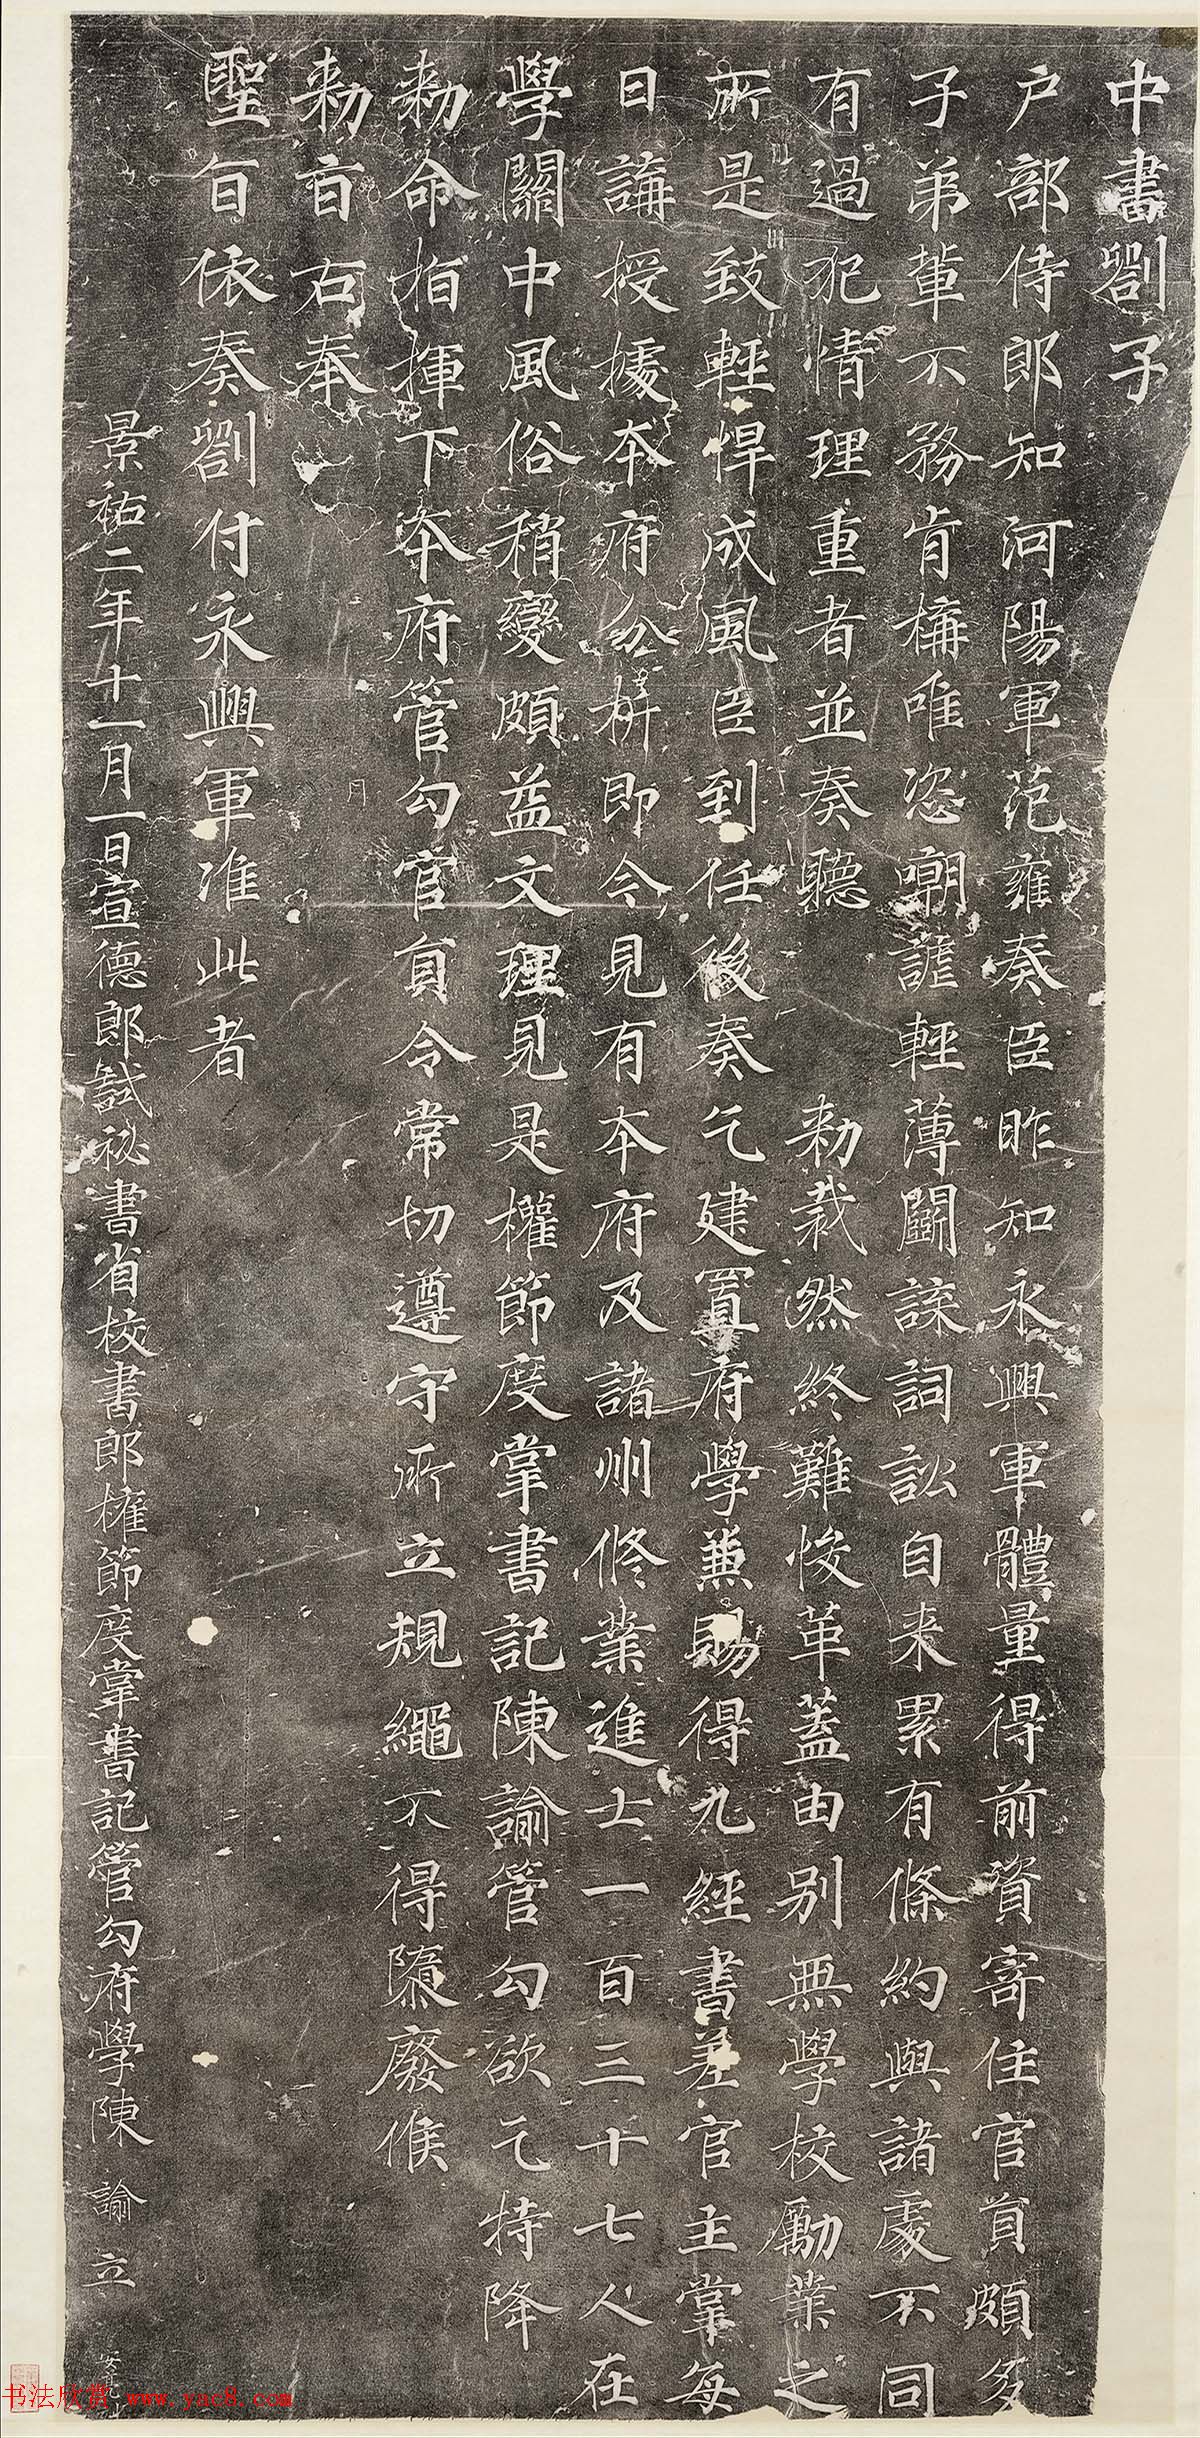 中書劄子
户部侍郎知河陽軍范雍奏臣昨知永興軍體量得前資寄住官員頗多
子弟輩不務肯構唯恣嘲謔輕薄鬭諜詞訟自来累有條約與諸處不同
有過犯情理重者並奏聽 勑裁然終難悛革蓋由别無學校勵業之
所是致輕悍成風臣到任後奏乞建置府學兼賜得九經書差官主掌每
日講授據本府分析即今見有本府及諸州修業進士一百三十七人在
學關中風俗稍變頗益文理見是權節度掌書記陳諭管勾欲乞特降
勑命指揮下本府管勾官員令常切遵守所立規繩不得隳廢候
勑旨右奉
聖旨依奏劄付永興軍准此者
景祐二年十一月一日宣德郎試秘書省校書郎權節度掌書記管勾府學陳 諭 立
书法欣赏 www.yac8.com